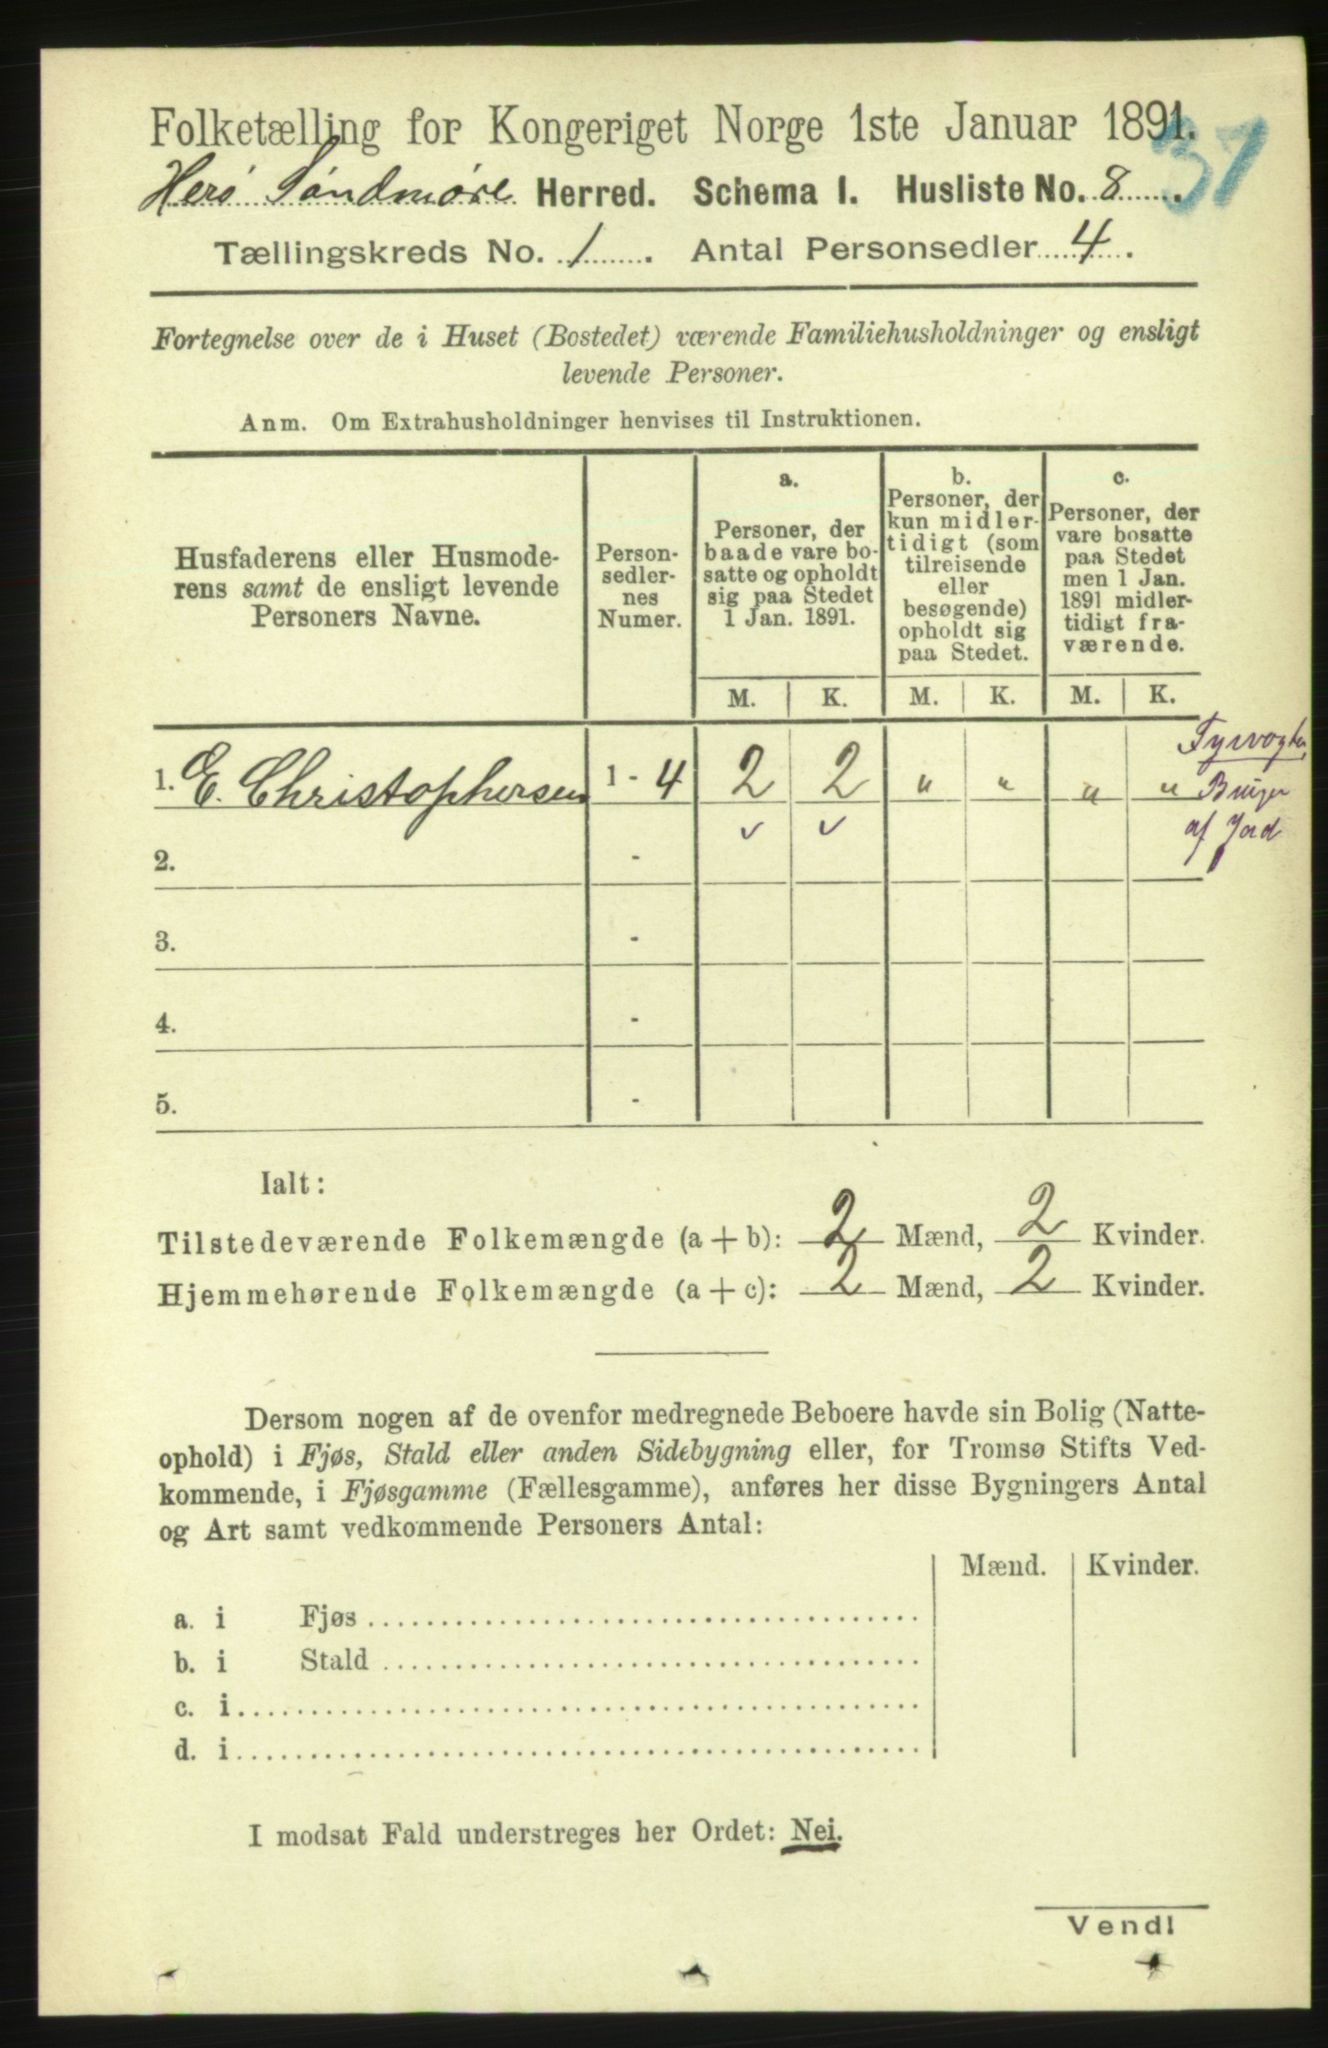 Folketælling for Kongeriget Norge 1ste Januar 1891.
37
Herö Söndmöre Herred. Schema I. Husliste No. 8.
Tællingskreds No. 1. Antal Personsedler 4.
Fortegnelse over de i Huset (Bostedet) værende Familiehusholdninger og ensligt
levende Personer.
Anm. Om Extrahusholdninger henvises til Instruktionen.
Husfaderens eller Husmode-
rens samt de ensligt levende
Personers Navne.
Person-
sedler-
nes
Numer.
a.
Personer, der
baade vare bo-
satte og opholdt
sig paa Stedet
1 Jan. 1891.
b.
Personer, der
kun midler-
tidigt (som
tilreisende
eller
besøgende)
opholdt sig
paa Stedet.
c.
Personer, der
vare bosatte
paa Stedet
men 1 Jan.
1891 midler-
tidigt fra-
værende.
M. K. M. K. M. K.
1. E. Christophersen 1 - 4 2 2 " " " "
Fyrvogter,
Bruger
af Jord
✓ ✓
2. -
3. -
4. -
5. -
Ialt:
Tilstedeværende Folkemængde (a + b): 2 Mænd, 2 Kvinder.
Hjemmehørende Folkemængde (a + c): 2 Mænd, 2 Kvinder.
Dersom nogen af de ovenfor medregnede Beboere havde sin Bolig (Natte-
ophold) i Fjøs, Stald eller anden Sidebygning eller, for Tromsø Stifts Ved-
kommende, i Fjøsgamme (Fællesgamme), anføres her disse Bygningers Antal
og Art samt vedkommende Personers Antal:
Mænd. Kvinder.
a. i Fjøs
b. i Stald
c. i
d. i
I modsat Fald understreges her Ordet: Nei.
Vend!